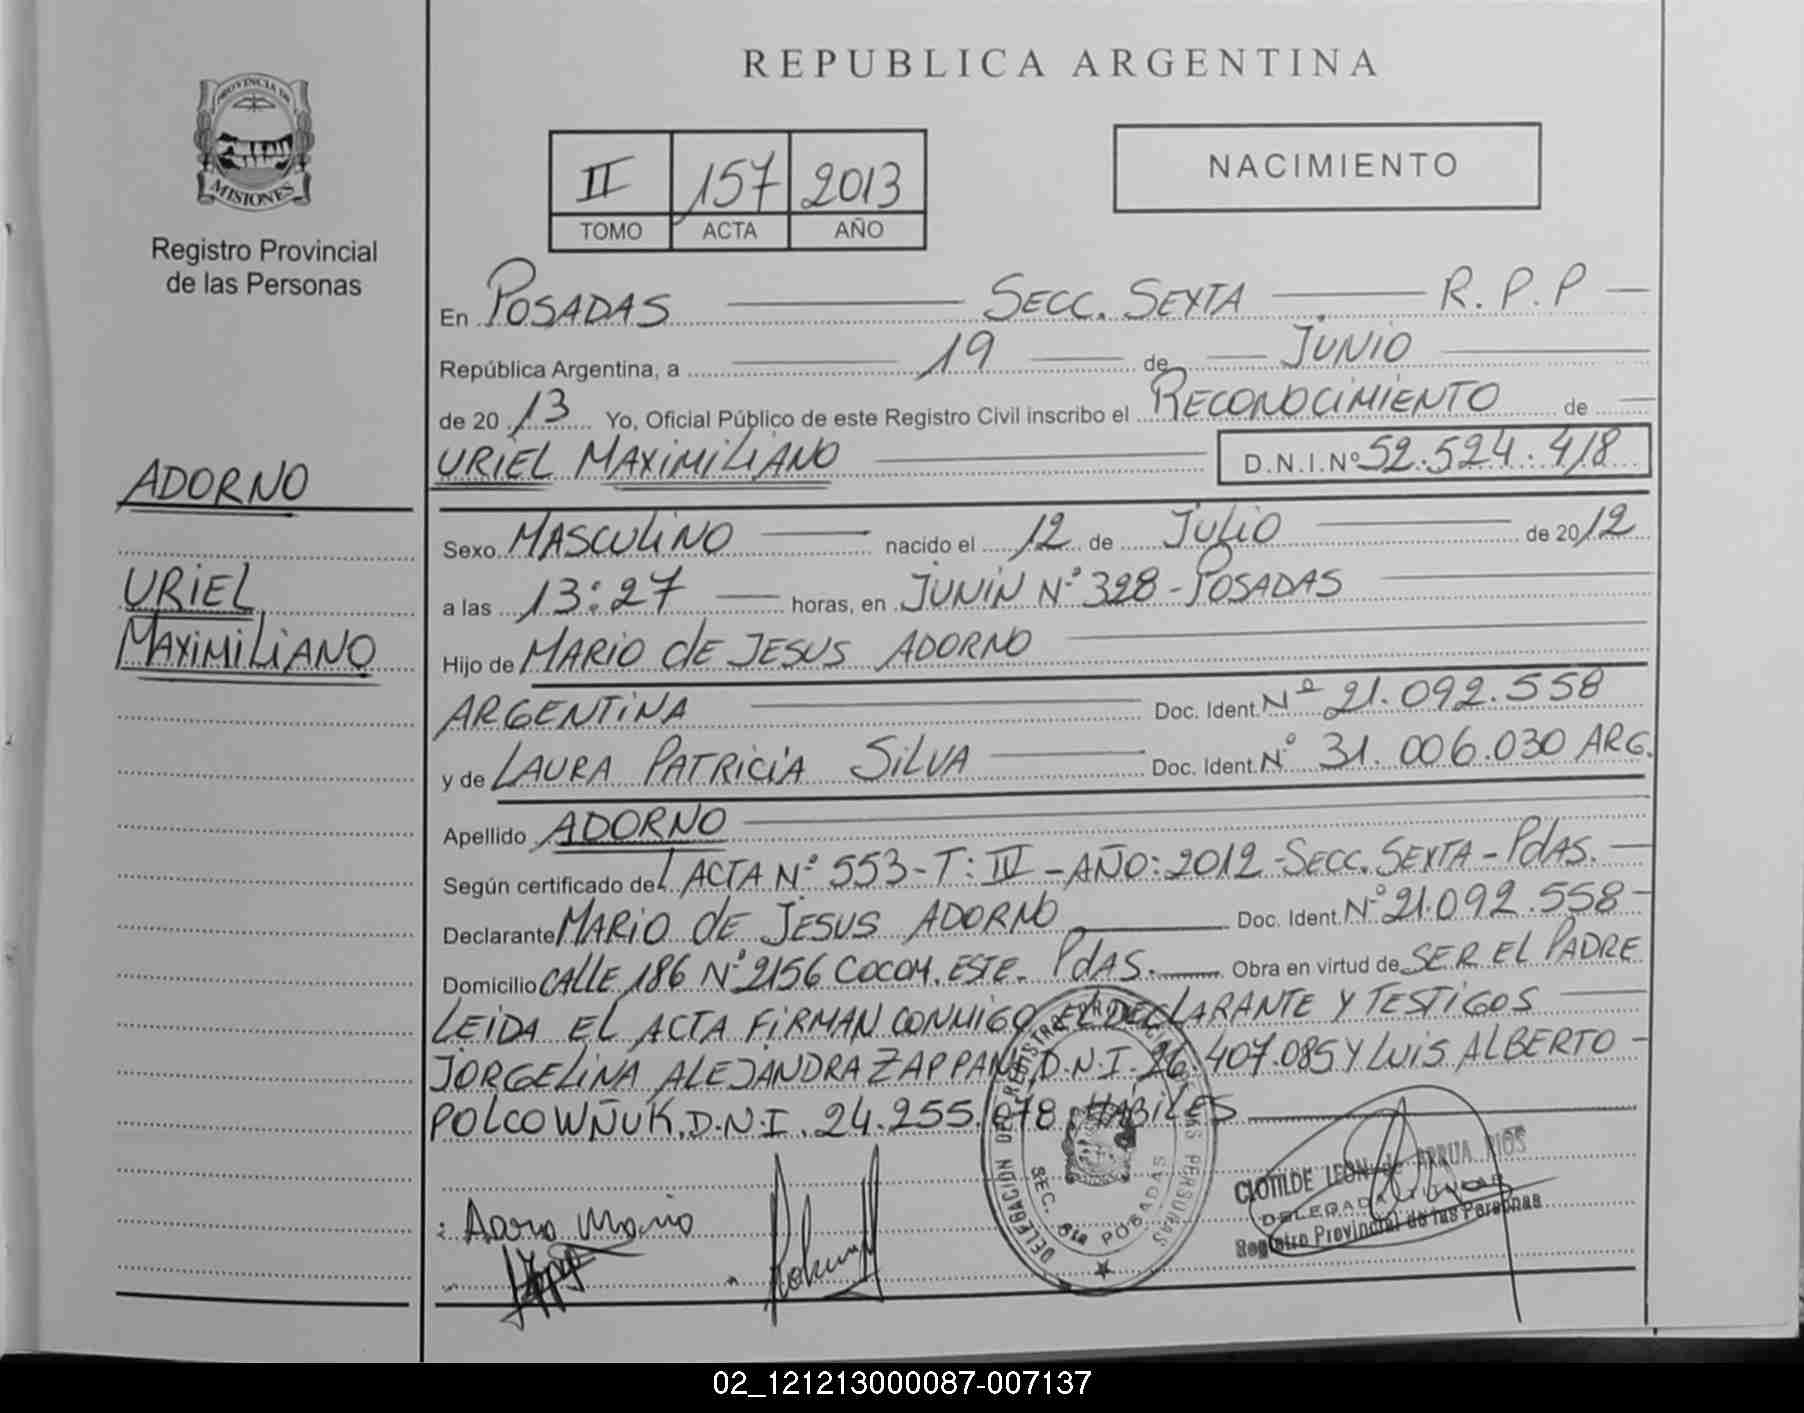 PROVINCIA DE
MISIONES
Registro Provincial
de las Personas
ADORNO
URIEL
MAXIMILIANO
REPUBLICA ARGENTINA
II 157 2013
TOMO ACTA AÑO
NACIMIENTO
En POSADAS SECC. SEXTA R.P.P
República Argentina, a 19 de JUNIO
de 20 13 Yo, Oficial Público de este Registro Civil inscribo el RECONOCIMIENTO de
URIEL MAXIMILIANO D.N.I.Nº 52.524.418
Sexo MASCULINO nacido el 12 de JULIO de 20 12
a las 13:27 horas, en JUNIN Nº 328 - POSADAS
Hijo de MARIO dE JESUS ADORNO
ARGENTINA Doc. Ident. Nº 21.092.558
y de LAURA PATRICIA SILVA Doc. Ident. Nº 31.006.030 ARG.
Apellido ADORNO
Según certificado del ACTA Nº 553-T: IV - AÑO: 2012 - SECC. SEXTA - PdAS.
Declarante MARIO dE JESUS ADORNO Doc. Ident. Nº 21.092.558
Domicilio CALLE 186 Nº 2156 COCOM. ESTE. PdAS. Obra en virtud de SER EL PADRE
LEIDA EL ACTA FIRMAN CONMIGO EL DECLARANTE Y TESTIGOS
JORGELINA ALEJANDRA ZAPPANI D.N.I. 26.407.085 Y LUIS ALBERTO
POLCOWÑUK. D.N.I. 24.255.078 HABILES
DELEGACION DEL REGISTRO PROVINCIAL DE LAS PERSONAS
SEC. 6ta POSADAS
CLOTILDE LEON de ARRUA RIOS
DELEGADA TITULAR
Registro Provincial de las Personas
02_121213000087-007137